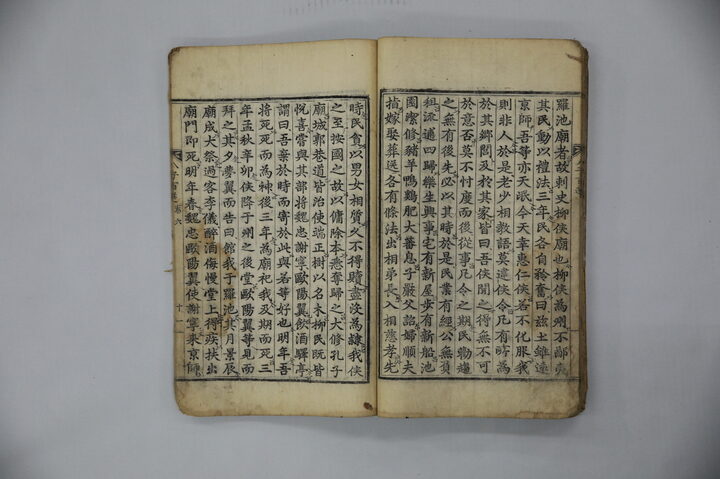 羅池廟者故刺史柳侯廟也柳侯為州不鄙夷
其民動以禮法三年民各自矜奮曰玆土雖遠
京師吾等亦天氓今天幸惠仁侯若不化服我
則非人於是老少相教語莫違侯令凡有所為
於其鄉閭及於其家皆曰吾侯聞之得無不可
於意否莫不忖度而後從事凡令之期民勸趨
之無有後先必以其時於是民業有經公無負
租流逋四歸樂生興事宅有新屋步有新船池
園潔修豬羊鴨鷄肥大蕃息子嚴父詔婦順夫
指嫁娶葬送各有條法出相弟長入相慈孝先
時民貧以男女相質久不得贖盡沒為隷我侯
之至按國之故以傭除本悉奪歸之大修孔子
廟城郭巷道皆治使端正樹以名木柳民既皆
悅喜嘗與其部將魏忠謝寧歐陽翼飲酒驛亭
謂曰吾棄於時而寄於此與若等好也明年吾
將死死而為神後三年為廟祀我及期而死三
年孟秋辛卯侯降于州之後堂歐陽翼等見而
拜之其夕夢翼而告曰館我于羅池其月景辰
廟成大祭過客李儀醉酒侮慢堂上得疾扶出
廟門即死明年春魏忠歐陽翼使謝寧來京師